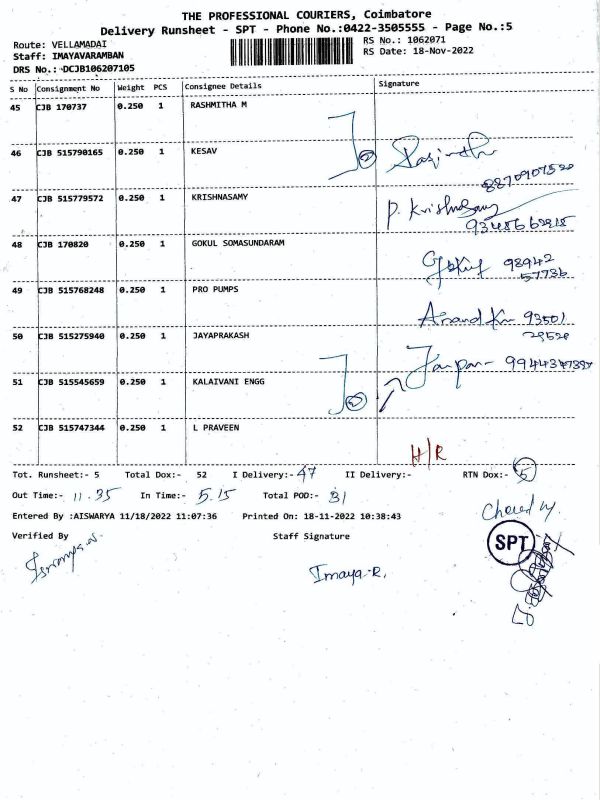 THE PROFESSIONAL COURIERS, Coimbatore
Delivery Runsheet - SPT - Phone No.:0422-3505555 - Page No.:5
Route: VELLAMADAI
RS No.: 1062071
Staff: IMAYAVARAMBAN
RS Date: 18-Nov-2022
DRS No.: DCJB106207105
S No Consignment No Weight PCS Consignee Details Signature
45 CJB 170737 0.250 1 RASHMITHA M
46 CJB 515790165 0.250 1 KESAV
8870907520
47 CJB 515779572 0.250 1 KRISHNASAMY P. Krishnasamy
48 CJB 170820 0.250 1 GOKUL SOMASUNDARAM
98942
57736
49 CJB 515768248 0.250 1 PRO PUMPS
Anand 93501
29520
50 CJB 515275940 0.250 1 JAYAPRAKASH
51 CJB 515545659 0.250 1 KALAIVANI ENGG
52 CJB 515747344 0.250 1 L PRAVEEN
H/R
Tot. Runsheet:- 5 Total Dox:- 52 I Delivery:- 47 II Delivery:- RTN Dox:- 5
Out Time:- 11.35 In Time:- 5.15 Total POD:- 31
Entered By :AISWARYA 11/18/2022 11:07:36 Printed On: 18-11-2022 10:38:43
Verified By Staff Signature
SPT
Imaya.R.